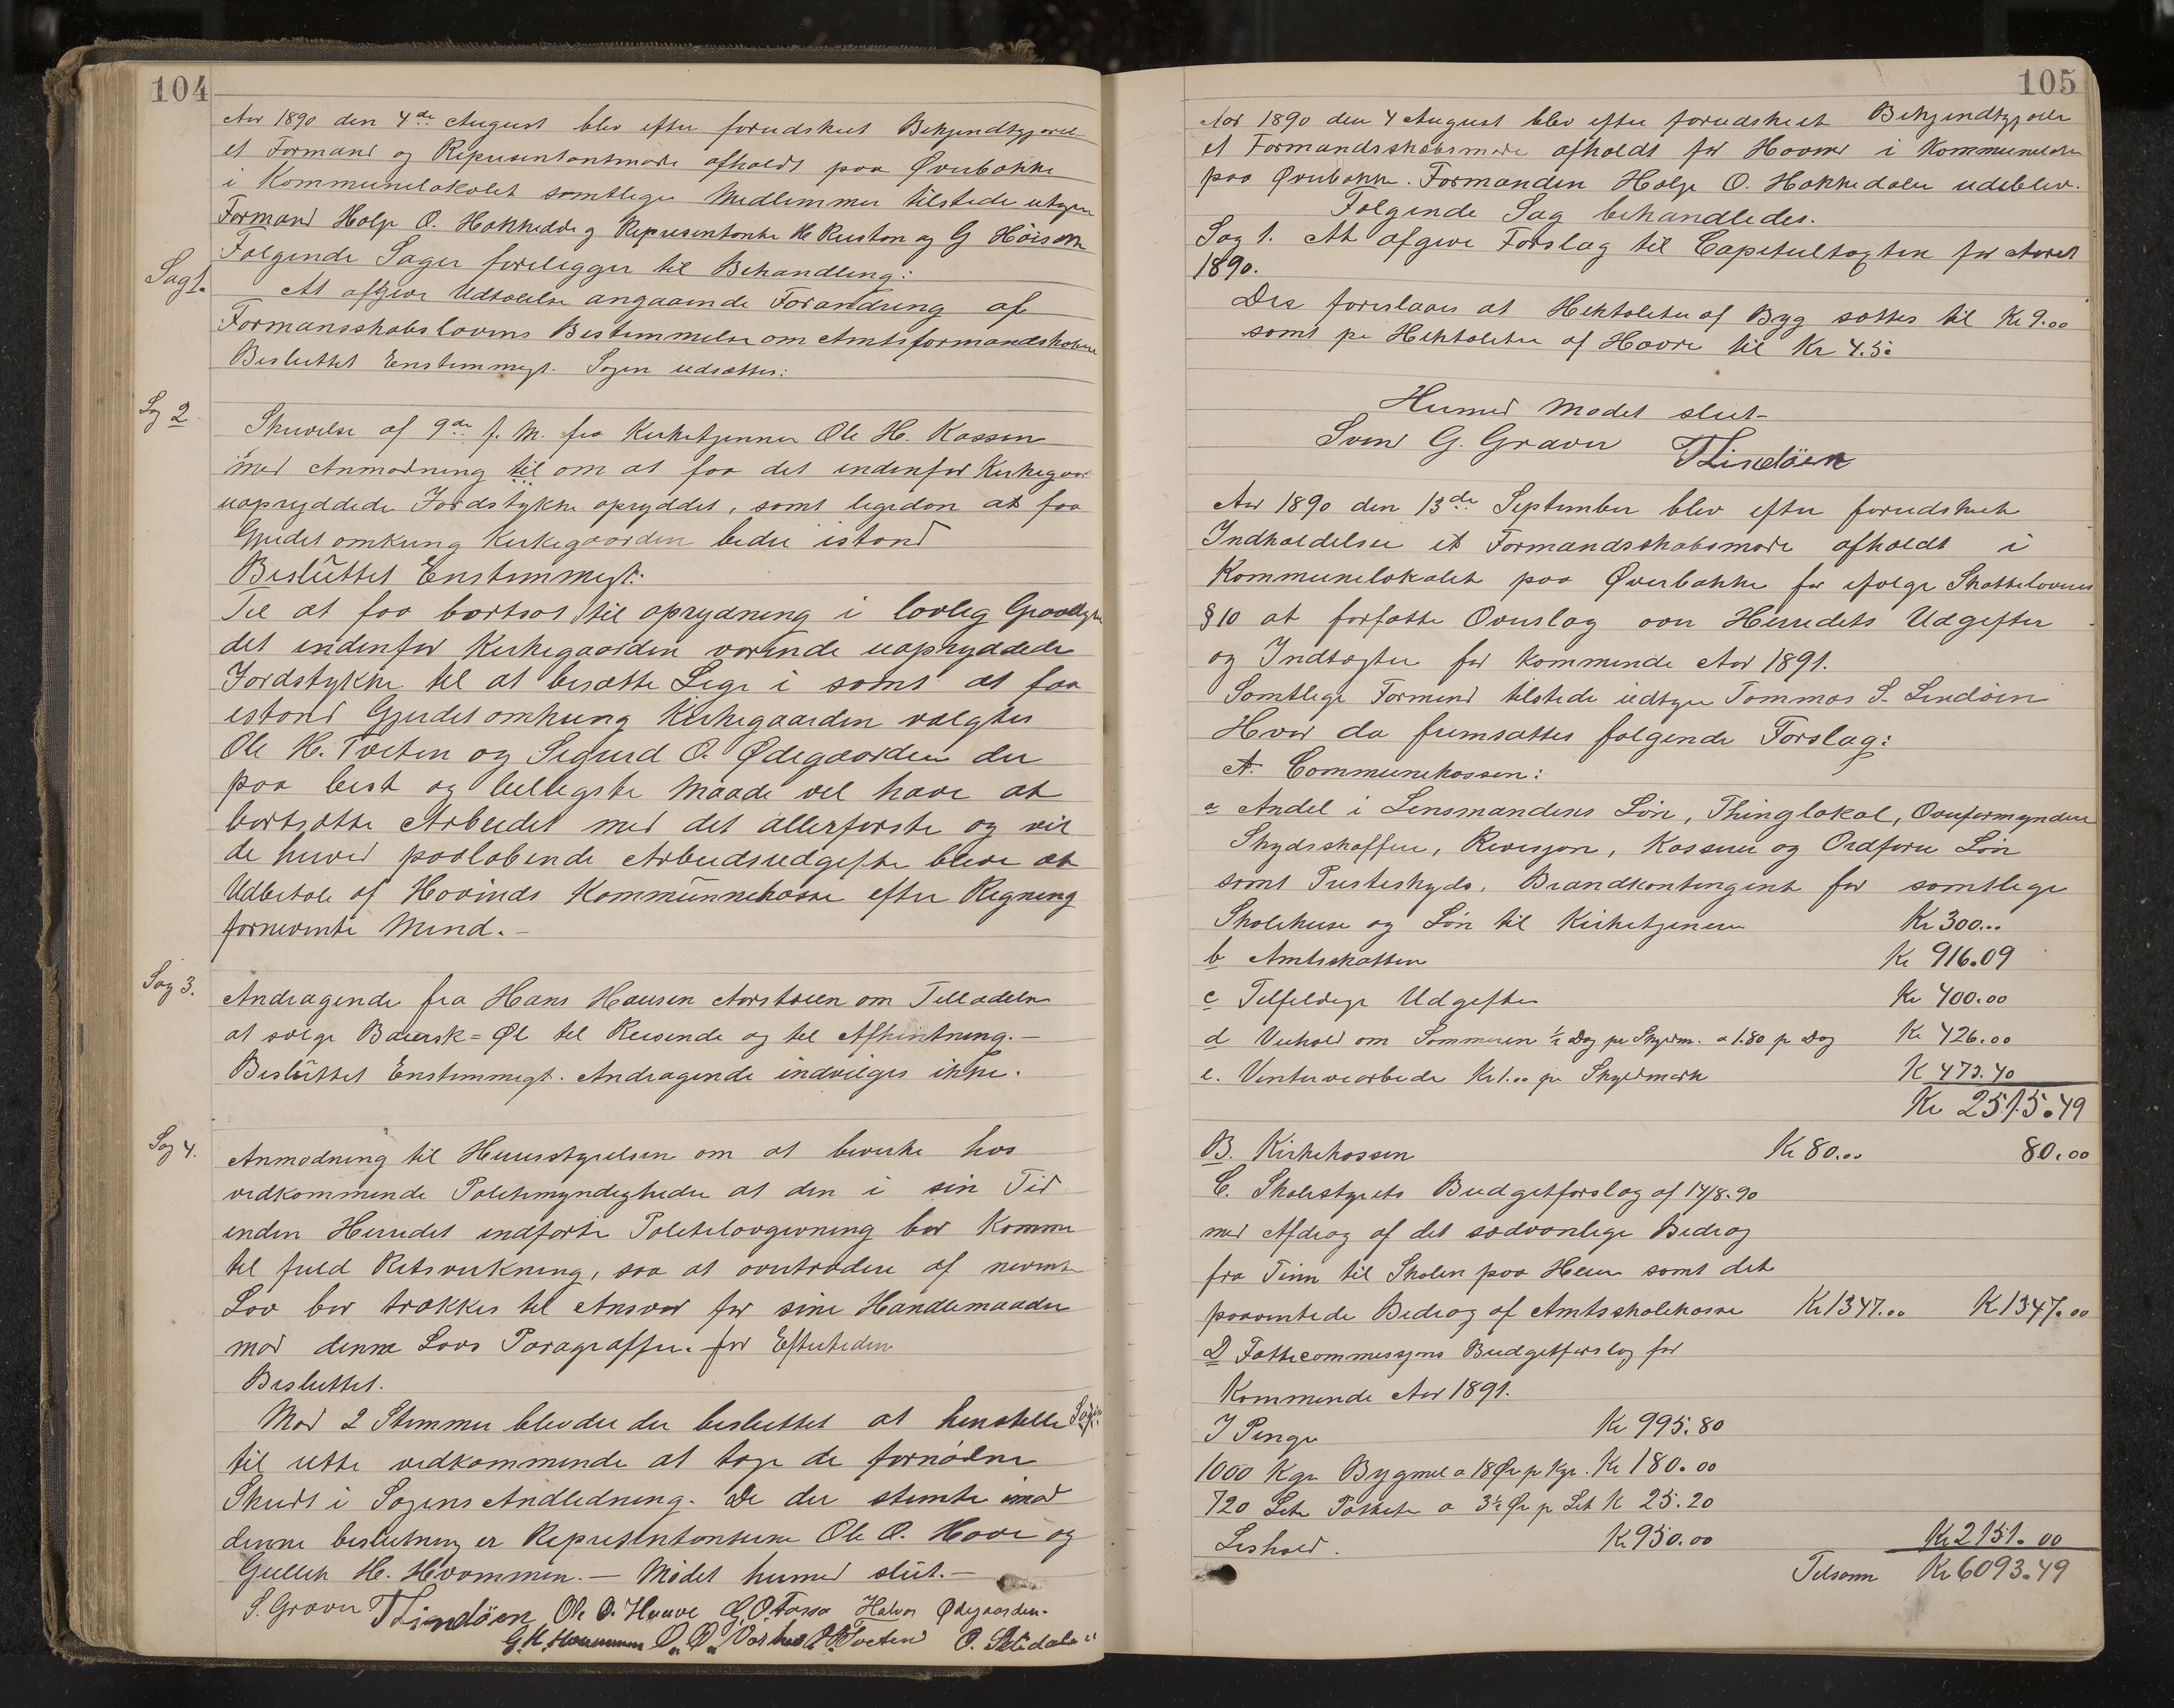 104
Aar 1890 den 4de August blev efter forudskeet Bekjendtgjørel
et Formand og Representantmøde afholdt paa Øverbakke
i Kommunelokalet samtlige Medlemmer tilstede utgen
Formand Holje O. Hakkedale og Representante H Ruston og G
Følgende Sager foreligger til Behandling:
Sag 1.
At afgive Udtalelse angaaende Forandring af
Formansskabslovens Bestemmelse om Amtsformandskabene
Besluttet Enstemmigt. Sagen udsættes:
Sag 2
Skrivelse af 9de f. M. fra Kirketjenner Ole H. Kaasen
med Anmodning til om at faa det indenfor Kirkegaar
uopryddede Jordstykke opryddet, samt ligedan at faa
Gjerdet omkring Kirkegaarden bedre istand
Besluttet Enstemmigt:
Til at faa bortsat til oprydning i lovlig
det indenfor Kirkegaarden værende uopryddede
Jordstykke til at besætte Lige i samt at faa
istand Gjerdet omkring Kirkegaarden valgtes
Ole H. Tveten og Sigurd O. Ødegaarden der
paa best og billigste Maade vil have at
bortsætte Arbeidet med det allerførste og vil
de herved paaløbende Arbeidsudgifte blive at
Udbetale af Hovinds Kommunnekasse efter Regning
fornevnte Mend.-
Sag 3.
Andragende fra Hans Hansen om Tilladelse
at sælge Baiersk=Øl til Reisende og til Afhentning.-
Besluttet Enstemmigt. Andragende indvilges ikke.
Sag 4.
Anmodning til Herredsstyrelsen om at bevirke hos
vedkommende Politimyndigheder at den i sin Tid
inden Herredet indførte Politilovgivning bør komme
til fuld Retsvirkning, saa at overtrædere af nevnte
Lov bør trækkes til Ansvar for sine Handlemaader
mod denne Lovs Paragraffer. for Eftertiden
Besluttet.
Mod 2 Stemmer blev der besluttet at henstelle Sagen
til rette vedkommende at tage de fornødne
Skridt i Sagens Andledning. De der stemte imod
denne beslutning er Representanterne Ole O. Hove og
Gullik H. Hvammen.- Mødet hermed slut.-
S. Graver TLindöen Ole O. Haave G. O. Fosso Halvor Ødegaarden.
G. H. O. O. O H Tveten O.
105
Aar 1890 den 4 August blev efter forudskeet Bekjendtgjørelse
et Formandsskabsmøde afholdt for Hovind i Kommunelokale
paa Øverbakke. Formanden Holje O. Hakkedalen udeblev.
Følgende Sag behandledes.
Sag 1. At afgive Forslag til Capitultagten for Aaret
1890.
Der foreslaaes at Hektoliter af Byg sættes til Kr 9.00
samt pr Hektoliter af Havre til Kr 4.50
Hermed Mødet slut-
Svend G. Graver TLindöen
Aar 1890 den 13de September blev efter forudskeet
Indkaldelse et Formandsskabsmøde afholdt i
Kommunelokalet paa Øverbakke for ifølge Skatteloven
§ 10 at forfatte Overslag over Herredets Udgifter
og Indtægter for kommende Aar 1891.
Samtlige Formend tilstede udtgen Tommas S. Lindöen
Hvor da fremsattes følgende Forslag:
A. Communekassen:
a Andel i Lensmandens Løn, Thinglokal, Overformynderi
Skydsskaffer, Revisjon, Kasserer og Ordfører Løn
samt Presteskyds, Brandkontingent for samtlige
Skolehuse og Løn til Kirketjeneren Kr 300.00
b Amtsskatten Kr 916.09
c Tilfeldige Udgifter Kr 400.00
d Veihold om Sommeren ½ Dag pr Skyldm. a 1.80 pr Dag Kr 426.00
e. Vinterveiarbeide Kr 1.00 pr Skyldmark K 473.40
Kr 2515.49
B. Kirkekassen Kr 80.00 80.00
C. Skolestyrets Budgetforslag af 14/8.90
med Afdrag af det sædvanlige Bedrag
fra Tinn til Skolen paa samt det
paaventede Bedrag af Amtsskolekasse Kr 1347.00 K 1347.00
D Fatticcommissjons Budgetforslag for
Kommende Aar 1891.
I Penge Kr 995.80
1000 Kgr Bygmel a 18 Øre pr Kgr. Kr 180.00
720 Liter Poteter a 3½ Øre pr Lit K 25.20
Leshold. K 950.00 Kr 2151.00
Tilsamm Kr 6093.49